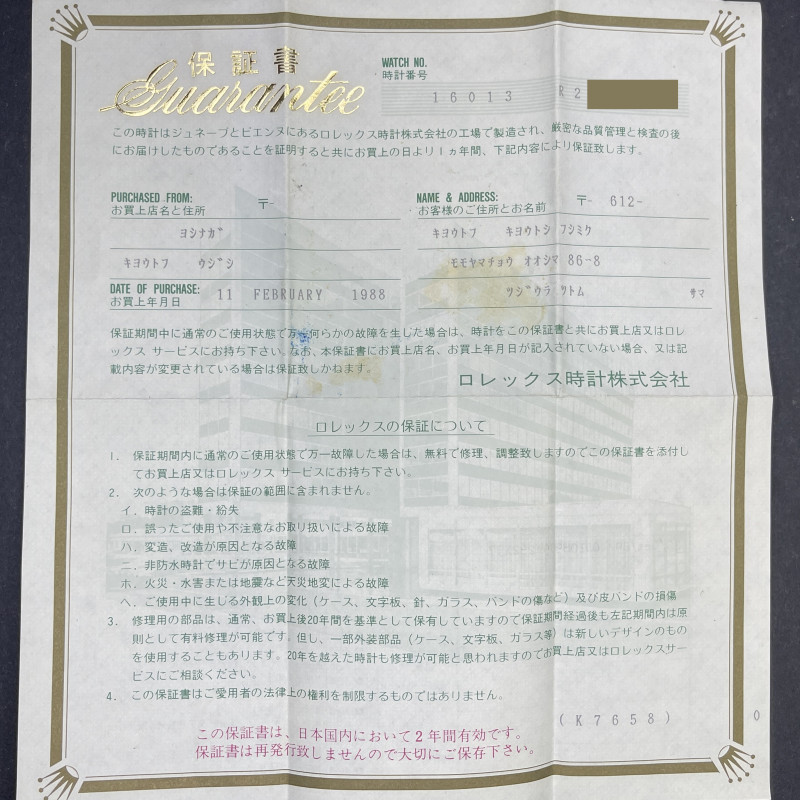 保証書
Guarantee
WATCH NO.
時計番号
16013 R2
この時計はジュネーブとビエンヌにあるロレックス時計株式会社の工場で製造され、厳密な品質管理と検査の後
にお届けしたものであることを証明すると共にお買上の日より1ヵ年間、下記内容により保証致します。
PURCHASED FROM:
お買上店名と住所
〒-
ヨシナガ
キヨウトフ ウジシ
NAME & ADDRESS:
お客様のご住所とお名前
〒- 612-
キヨウトフ キヨウトシ フシミク
モモヤマチョウ オオシマ 86-8
ツジウラ ツトム サマ
DATE OF PURCHASE:
お買上年月日
11 FEBRUARY 1988
保証期間中に通常のご使用状態で万一何らかの故障を生した場合は、時計をこの保証書と共にお買上店又はロレ
ックス サービスにお持ち下さい。なお、本保証書にお買上店名、お買上年月日が記入されていない場合、又は記
載内容が変更されている場合は保証致しかねます。
ロレックス時計株式会社
ロレックスの保証について
1. 保証期間内に通常のご使用状態で万一故障した場合は、無料で修理、調整致しますのでこの保証書を添付し
てお買上店又はロレックス サービスにお持ち下さい。
2. 次のような場合は保証の範囲に含まれません。
イ. 時計の盗難・紛失
ロ. 誤ったご使用や不注意なお取り扱いによる故障
ハ. 変造、改造が原因となる故障
ニ. 非防水時計でサビが原因となる故障
ホ. 火災・水害または地震など天災地変による故障
ヘ. ご使用中に生じる外観上の変化(ケース、文字板、針、ガラス、バンドの傷など)及び皮バンドの損傷
3. 修理用の部品は、通常、お買上後20年間を基準として保有していますので保証期間経過後も左記期間内は原
則として有料修理が可能です。但し、一部外装部品(ケース、文字板、ガラス等)は新しいデザインのもの
を使用することもあります。20年を越えた時計も修理が可能と思われますのでお買上店又はロレックスサー
ビスにご相談ください。
4. この保証書はご愛用者の法律上の権利を制限するものではありません。
(K7658) 0
この保証書は、日本国内において2年間有効です。
保証書は再発行致しませんので大切にご保存下さい。